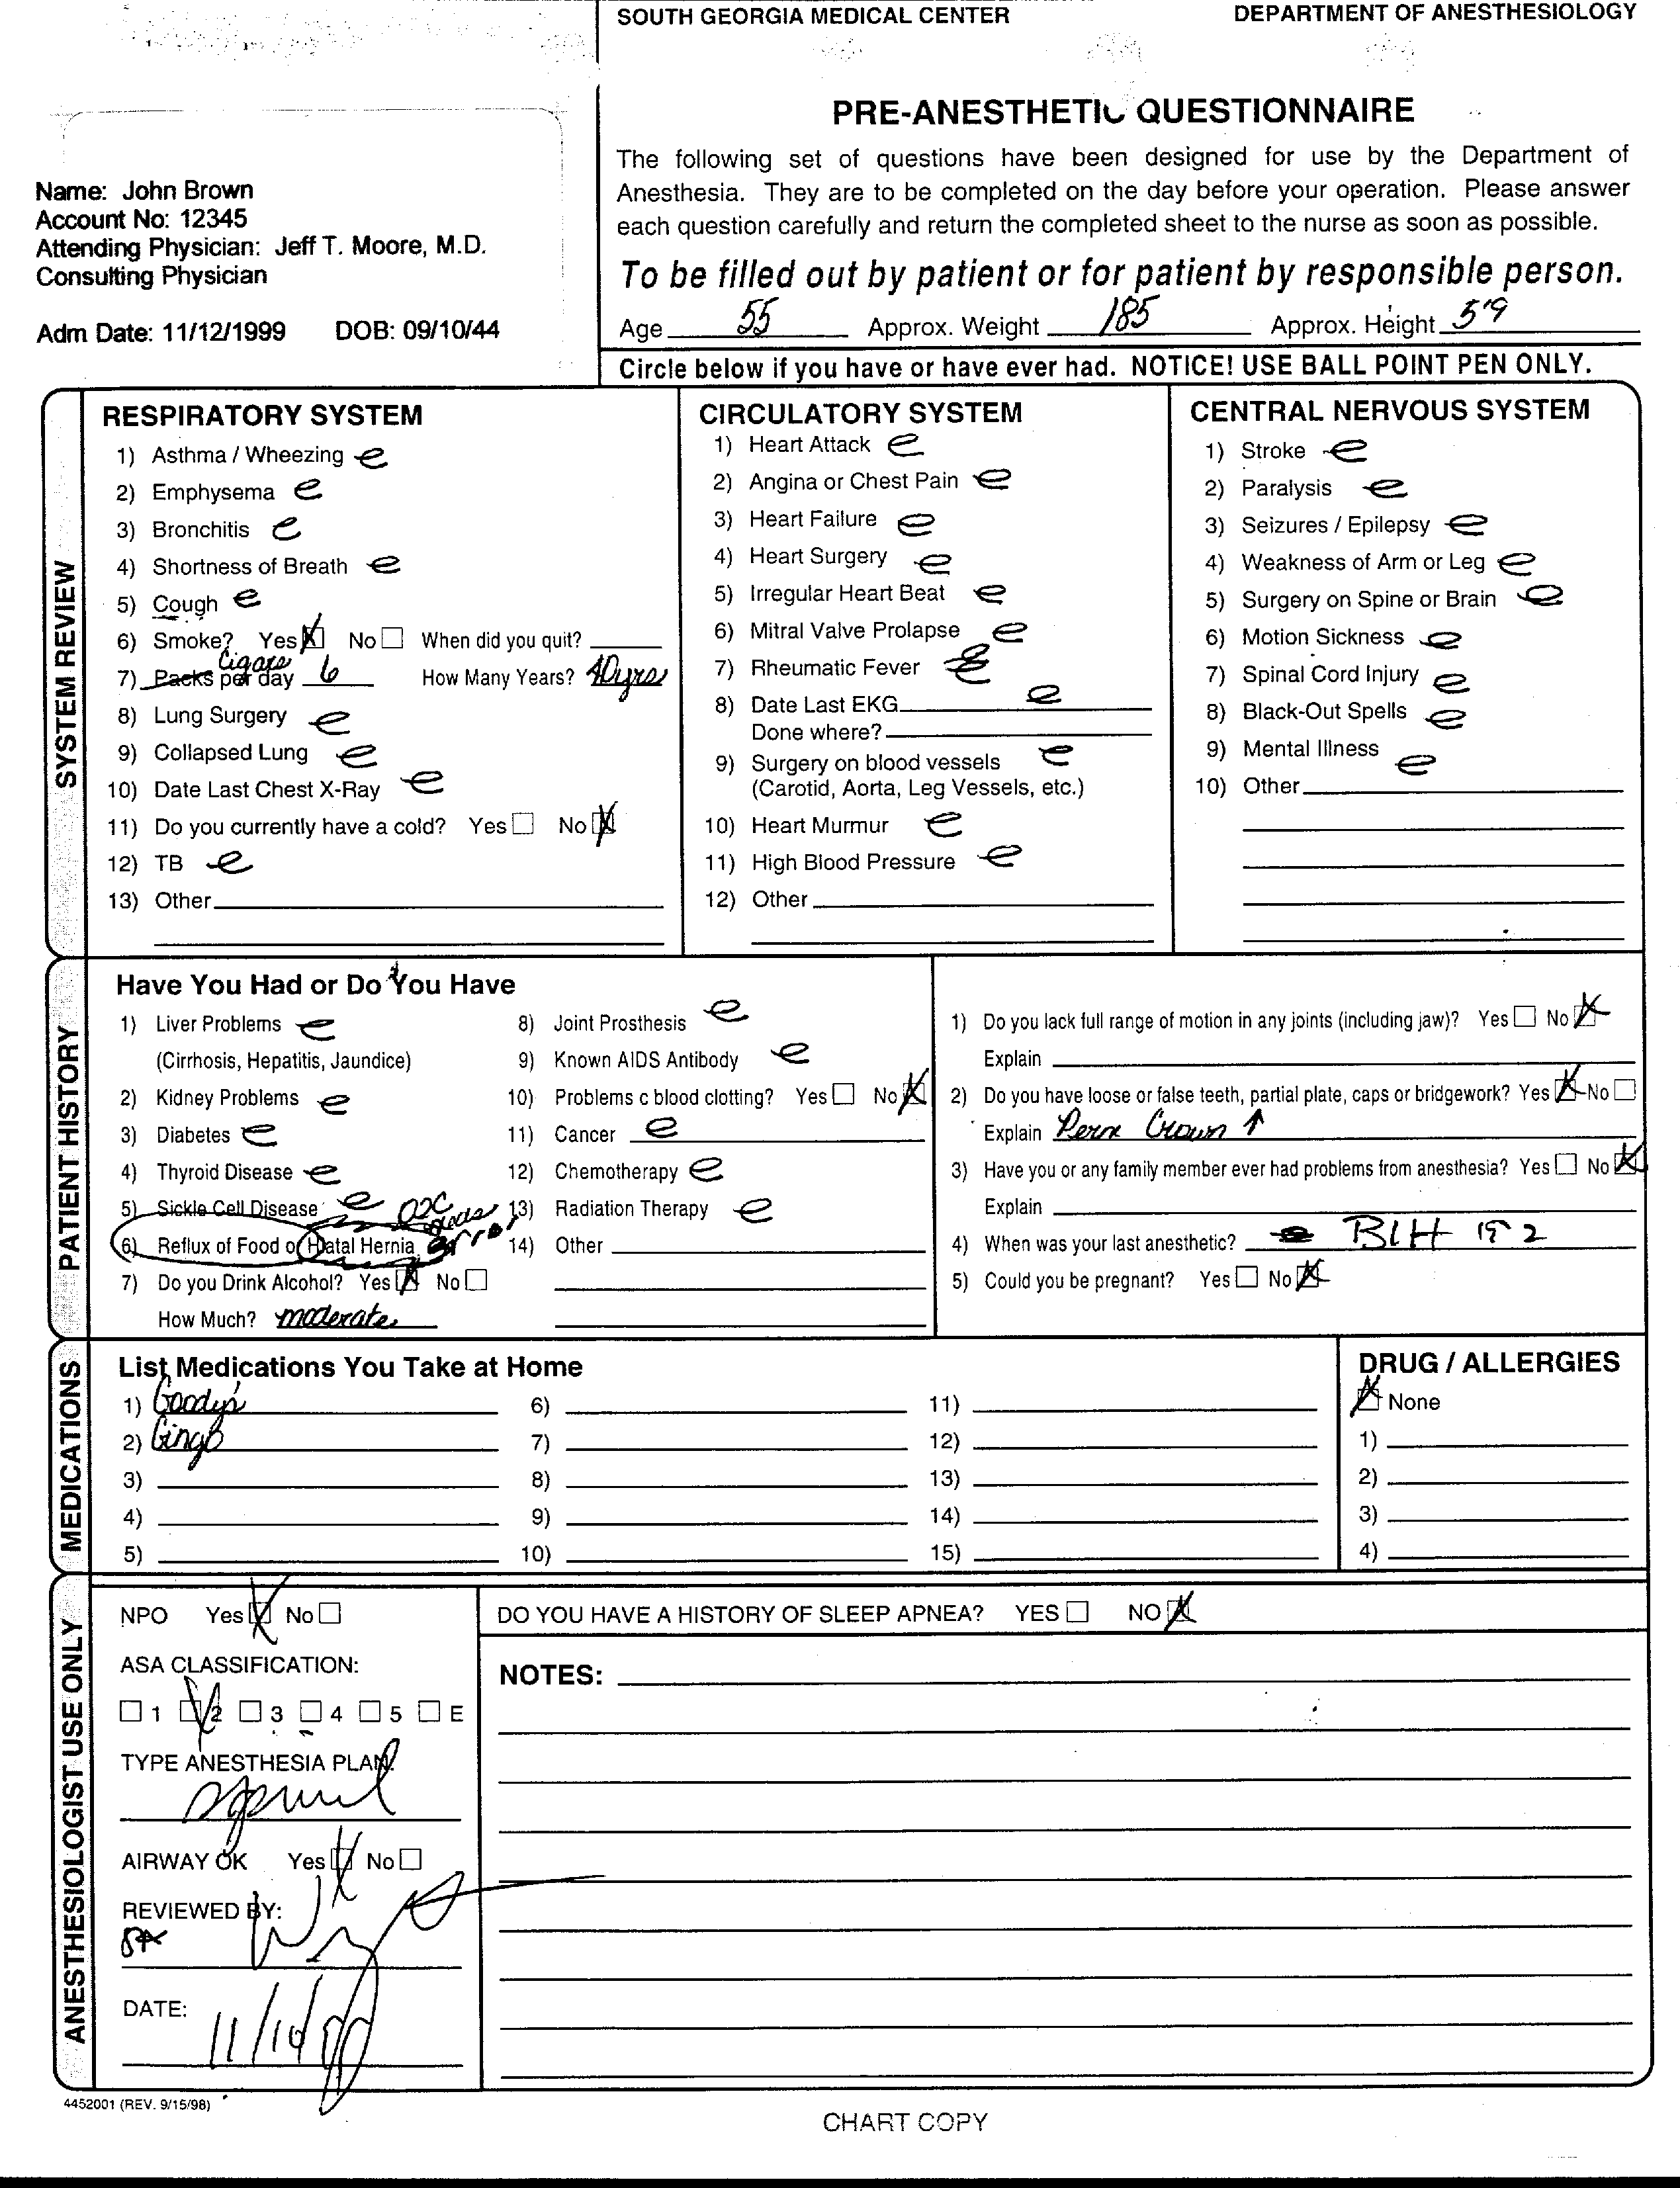 SOUTH GEORGIA MEDICAL CENTER DEPARTMENT OF ANESTHESIOLOGY
PRE-ANESTHETIC QUESTIONNAIRE
The following set of questions have been designed for use by the Department of
Anesthesia. They are to be completed on the day before your operation. Please answer
each question carefully and return the completed sheet to the nurse as soon as possible.
To be filled out by patient or for patient by responsible person.
Age 55 Approx. Weight 185 Approx. Height 5'9
Circle below if you have or have ever had. NOTICE! USE BALL POINT PEN ONLY.
Name: John Brown
Account No: 12345
Attending Physician: Jeff T. Moore, M.D.
Consulting Physician
Adm Date: 11/12/1999 DOB: 09/10/44
SYSTEM REVIEW
RESPIRATORY SYSTEM
1) Asthma / Wheezing
2) Emphysema
3) Bronchitis
4) Shortness of Breath
5) Cough
6) Smoke? Yes No When did you quit?
cigars
7) Packs per day 6 How Many Years? 40 yrs
8) Lung Surgery
9) Collapsed Lung
10) Date Last Chest X-Ray
11) Do you currently have a cold? Yes No
12) TB
13) Other
CIRCULATORY SYSTEM
1) Heart Attack
2) Angina or Chest Pain
3) Heart Failure
4) Heart Surgery
5) Irregular Heart Beat
6) Mitral Valve Prolapse
7) Rheumatic Fever
8) Date Last EKG
Done where?
9) Surgery on blood vessels
(Carotid, Aorta, Leg Vessels, etc.)
10) Heart Murmur
11) High Blood Pressure
12) Other
CENTRAL NERVOUS SYSTEM
1) Stroke
2) Paralysis
3) Seizures / Epilepsy
4) Weakness of Arm or Leg
5) Surgery on Spine or Brain
6) Motion Sickness
7) Spinal Cord Injury
8) Black-Out Spells
9) Mental Illness
10) Other
PATIENT HISTORY
Have You Had or Do You Have
1) Liver Problems
(Cirrhosis, Hepatitis, Jaundice)
2) Kidney Problems
3) Diabetes
4) Thyroid Disease
5) Sickle Cell Disease
6) Reflux of Food or Hiatal Hernia error
7) Do you Drink Alcohol? Yes No
How Much? moderate
8) Joint Prosthesis
9) Known AIDS Antibody
10) Problems c blood clotting? Yes No
11) Cancer
12) Chemotherapy
13) Radiation Therapy
14) Other
1) Do you lack full range of motion in any joints (including jaw)? Yes No
Explain
2) Do you have loose or false teeth, partial plate, caps or bridgework? Yes No
Explain Perm Crown ↑
3) Have you or any family member ever had problems from anesthesia? Yes No
Explain
4) When was your last anesthetic? BIH
5) Could you be pregnant? Yes No
MEDICATIONS
List Medications You Take at Home
1) Goody's
2) Gingo
3)
4)
5)
6)
7)
8)
9)
10)
11)
12)
13)
14)
15)
DRUG / ALLERGIES
None
1)
2)
3)
4)
ANESTHESIOLOGIST USE ONLY
NPO Yes No
ASA CLASSIFICATION:
1 2 3 4 5 E
TYPE ANESTHESIA PLAN:
AIRWAY OK Yes No
REVIEWED BY:
DATE: 11/10
DO YOU HAVE A HISTORY OF SLEEP APNEA? YES NO
NOTES:
4452001 (REV. 9/15/98)
CHART COPY